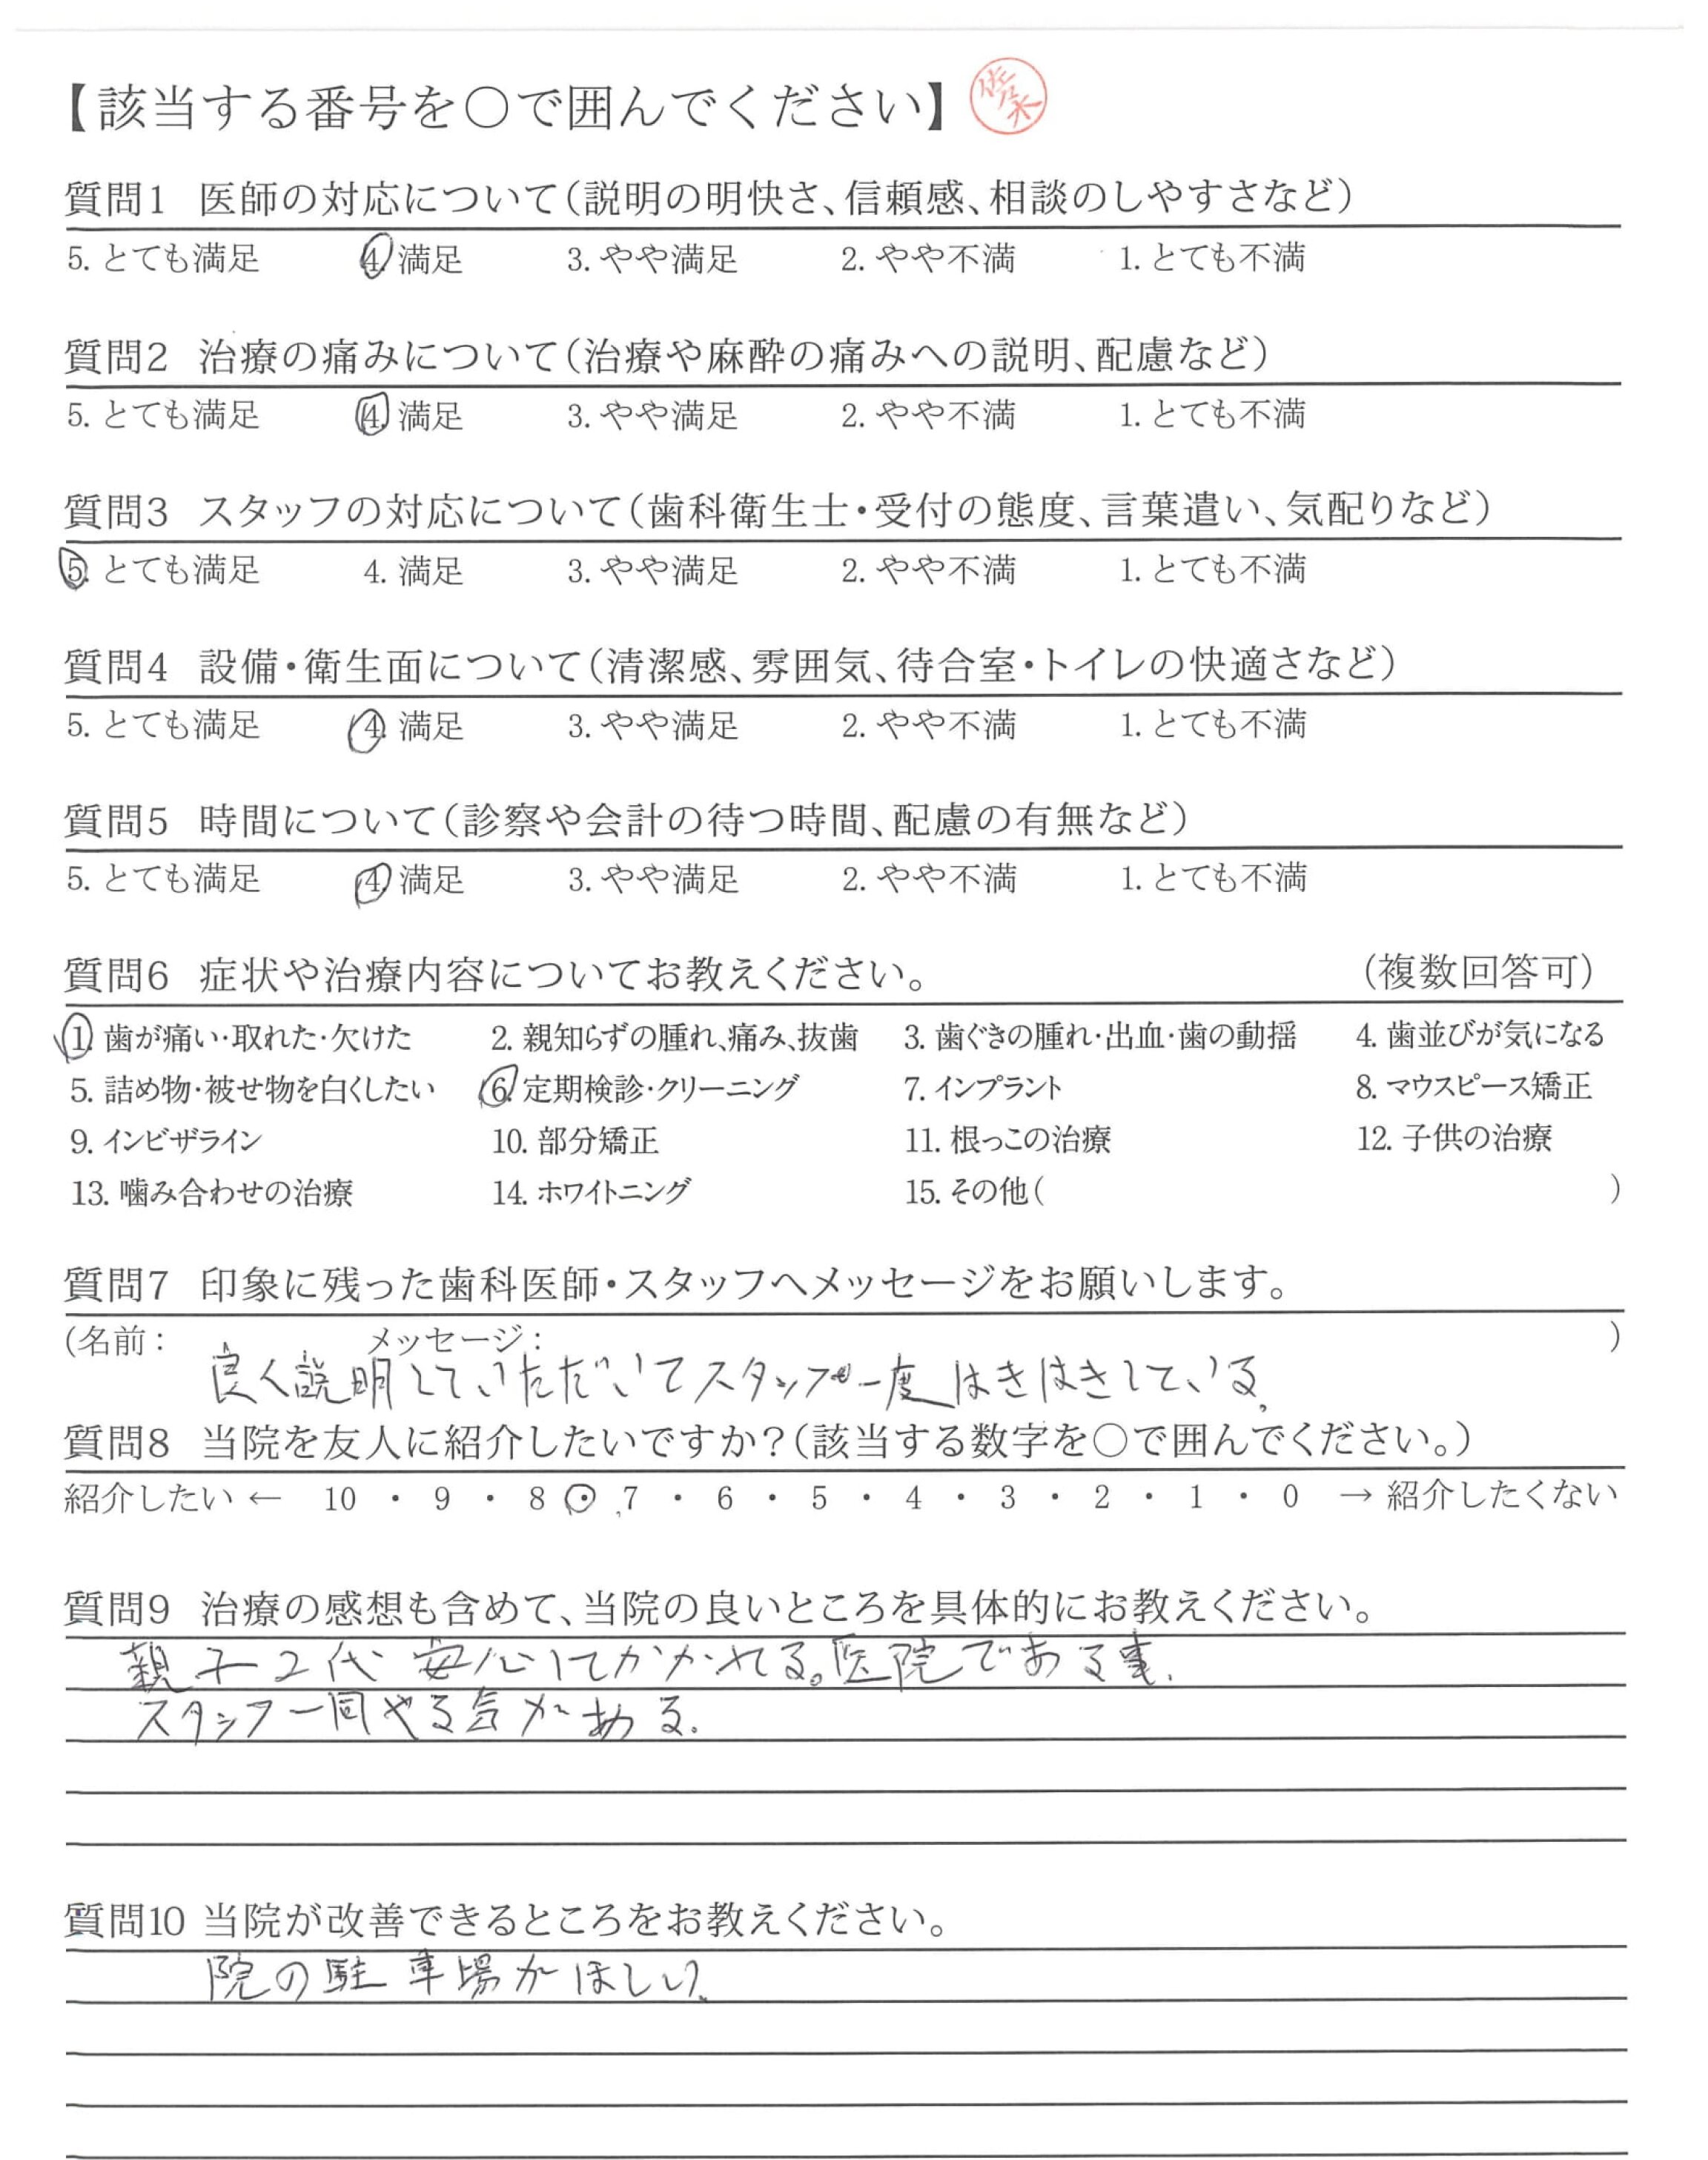 【該当する番号を○で囲んでください】 佐々木
質問1 医師の対応について(説明の明快さ、信頼感、相談のしやすさなど)
5. とても満足 4. 満足 3. やや満足 2. やや不満 1. とても不満
質問2 治療の痛みについて(治療や麻酔の痛みへの説明、配慮など)
5. とても満足 4. 満足 3. やや満足 2. やや不満 1. とても不満
質問3 スタッフの対応について(歯科衛生士・受付の態度、言葉遣い、気配りなど)
5. とても満足 4. 満足 3. やや満足 2. やや不満 1. とても不満
質問4 設備・衛生面について(清潔感、雰囲気、待合室・トイレの快適さなど)
5. とても満足 4. 満足 3. やや満足 2. やや不満 1. とても不満
質問5 時間について(診察や会計の待つ時間、配慮の有無など)
5. とても満足 4. 満足 3. やや満足 2. やや不満 1. とても不満
質問6 症状や治療内容についてお教えください。 (複数回答可)
1. 歯が痛い・取れた・欠けた 2. 親知らずの腫れ、痛み、抜歯 3. 歯ぐきの腫れ・出血・歯の動揺 4. 歯並びが気になる
5. 詰め物・被せ物を白くしたい 6. 定期検診・クリーニング 7. インプラント 8. マウスピース矯正
9. インビザライン 10. 部分矯正 11. 根っこの治療 12. 子供の治療
13. 噛み合わせの治療 14. ホワイトニング 15. その他( )
質問7 印象に残った歯科医師・スタッフへメッセージをお願いします。
(名前: メッセージ: )
良く説明していただいてスタッフ一度はきはきしている。
質問8 当院を友人に紹介したいですか?(該当する数字を○で囲んでください。)
紹介したい ← 10 ・ 9 ・ 8 ・ 7 ・ 6 ・ 5 ・ 4 ・ 3 ・ 2 ・ 1 ・ 0 → 紹介したくない
質問9 治療の感想も含めて、当院の良いところを具体的にお教えください。
親子2代安心してかかれる。医院である事。
スタッフ一同やる気がある。
質問10 当院が改善できるところをお教えください。
院の駐車場がほしい。